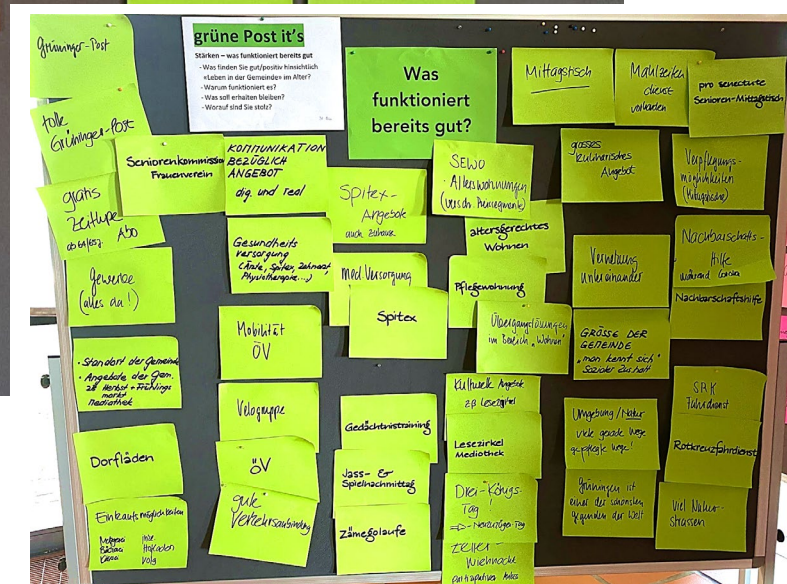 grüne Post it's
Stärken – was funktioniert bereits gut
- Was finden Sie gut/positiv hinsichtlich
«Leben in der Gemeinde» im Alter?
- Warum funktioniert es?
- Was soll erhalten bleiben?
- Worauf sind Sie stolz?
Was
funktioniert
bereits gut?
Grüninger-Post
tolle
Grüninger-Post
gratis
Zeitlupe
Abo
Gewerbe
(alles da!)
• Standort der Gemeinde
• Angebote der Gem.
zB Herbst + Frühlings
markt
Mediathek
Dorfläden
Einkaufsmöglichkeiten
Volg
Seniorenkommission
Frauenverein
KOMMUNIKATION
BEZÜGLICH
ANGEBOT
dig. und real
Gesundheits
versorgung
(Ärzte, Spitex, Zahnarzt,
Physiotherapie....)
Mobilität
ÖV
Velogruppe
ÖV
gute
Verkehrsanbindung
Spitex-
Angebote
auch Zuhause
med. Versorgung
Spitex
Gedächtnistraining
Jass- &
Spielnachmittag
Zämegolaufe
SEWO
• Alterswohnungen
(versch. Preissegmente)
altersgerechtes
Wohnen
Pflegewohnung
Übergangslösungen
im Bereich „Wohnen"
Kulturelle Angebote
zB Lesezirkel
Lesezirkel
Mediothek
Drei-Königs-
Tag!
=> Neuzuzüger-Tag
Wiehnacht
Mittagstisch
Mahlzeiten
dienst
vorhanden
pro senectute
Senioren-Mittagstisch
grosses
kulinarisches
Angebot
Verpflegungs-
möglichkeiten
(Mittagstische)
Vernetzung
untereinander
Nachbarschafts-
Hilfe
während Corona
Nachbarschaftshilfe
GRÖSSE DER
GEMEINDE
„man kennt sich"
Sozialer Zushalt
Umgebung/Natur
viele gerade Wege
gepflegte Wege!
Grüningen ist
einer der schönsten
Gegenden der Welt
SRK
Fahrdienst
Rotkreuzfahrdienst
viel Natur-
strassen